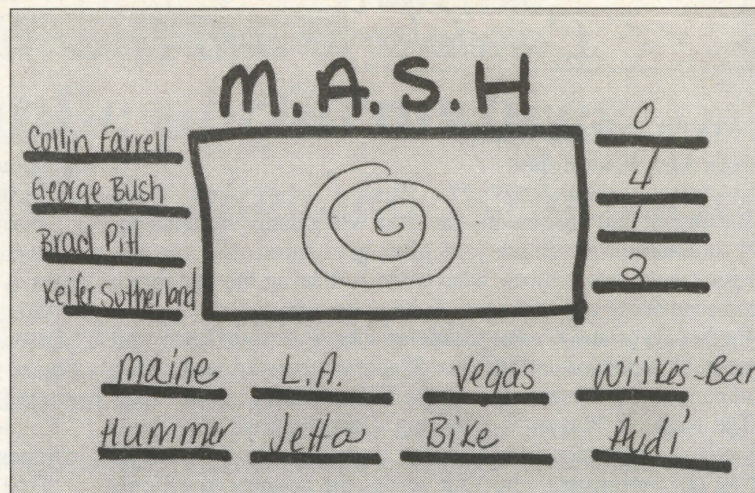 M.A.S.H
Collin Farrell
George Bush
Brad Pitt
Keifer Sutherland
0
4
1
2
Maine L.A. Vegas Wilkes-Bar
Hummer Jetta Bike Audi